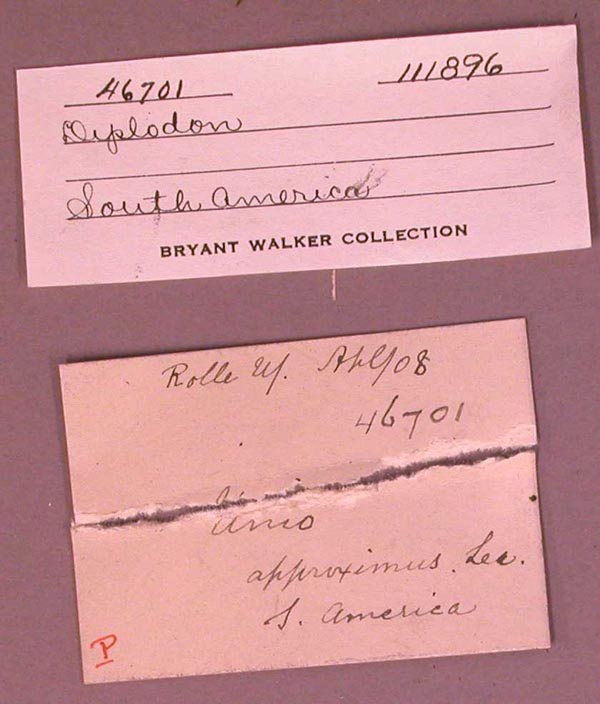 46701 111896
Diplodon
South America
BRYANT WALKER COLLECTION
Rolle Apl/08
46701
Unio
approximus. Lea.
S. America
P